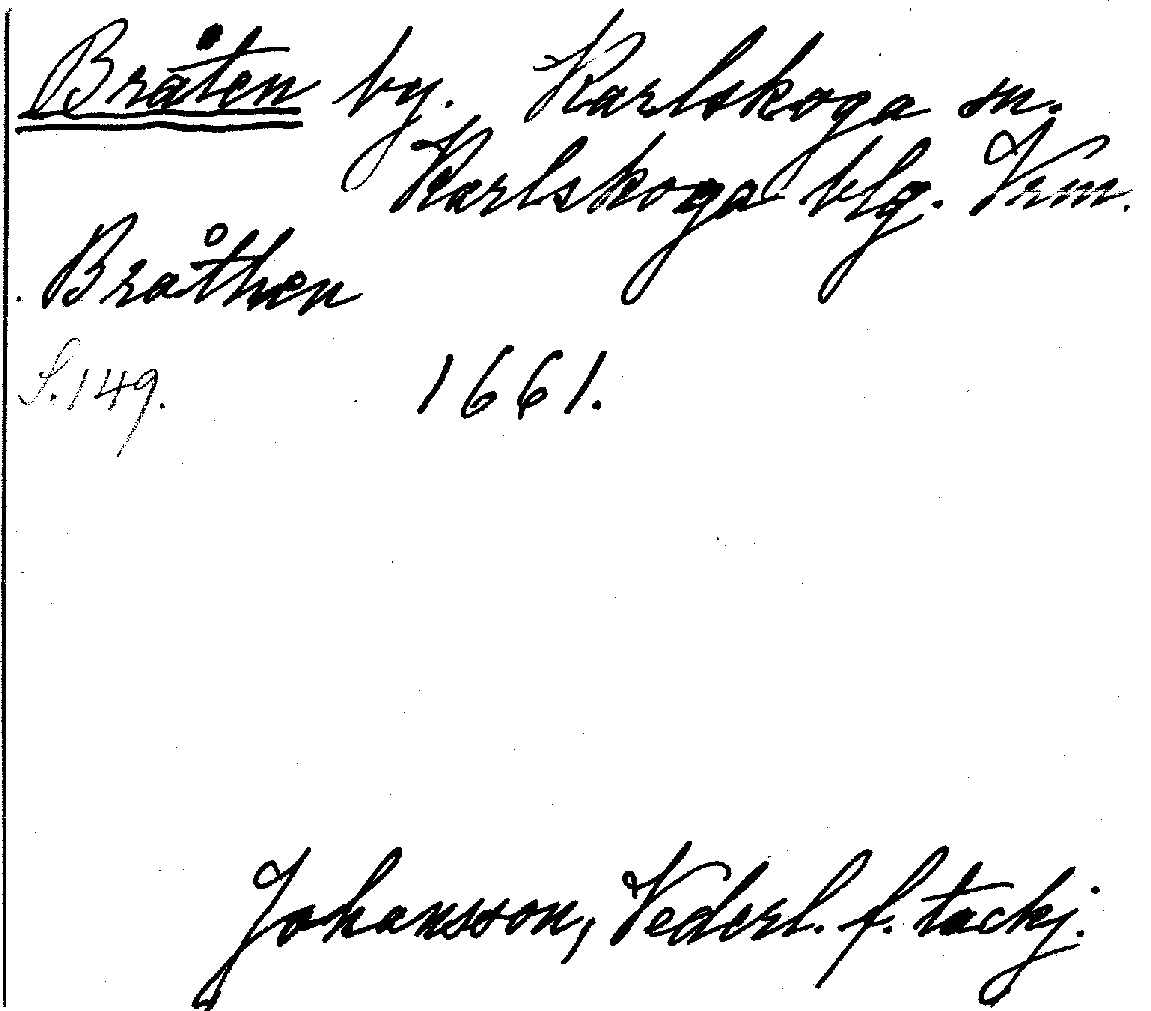 Bråten by. Karlskoga sn.
Karlskoga blg. Vrm.
Bråthen
S. 149. 1661.
Johansson, Vederl. f. tackj.